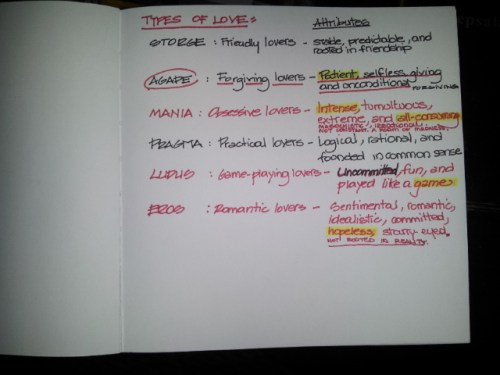 TYPES OF LOVE: Attributes
STORGE : Friendly lovers - stable, predictable, and
rooted in friendship
AGAPE : Forgiving lovers - Patient, selfless, giving
and unconditional FORGIVING
MANIA : Obsessive lovers - Intense, tumultuous,
extreme, and all-consuming
PRAGMA : Practical lovers - Logical, rational, and
founded in common sense
LUDUS : Game-playing lovers - Uncommitted, fun, and
played like a game
EROS : Romantic lovers - Sentimental, romantic,
idealistic, committed,
hopeless, starry-eyed.
NOT ROOTED IN REALITY.